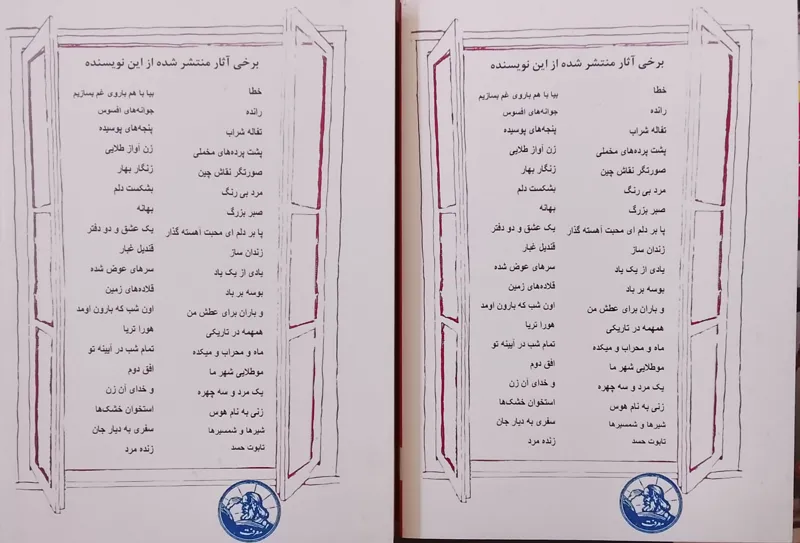 برخی آثار منتشر شده از این نویسنده
خطا
رانده
تفاله شراب
پشت پرده‌های مخملی
صورتگر نقاش چین
مرد بی رنگ
صبر بزرگ
پا بر دلم ای محبت آهسته گذار
زندان ساز
یادی از یک یاد
بوسه بر باد
و باران برای عطش من
همهمه در تاریکی
ماه و محراب و میکده
موطلایی شهر ما
یک مرد و سه چهره
زنی به نام هوس
شیرها و شمسیرها
تابوت حسد
بیا با هم باروی غم بسازیم
جوانه‌های افسوس
پنجه‌های پوسیده
زن آواز طلایی
زنگار بهار
بشکست دلم
بهانه
یک عشق و دو دفتر
قندیل غبار
سرهای عوض شده
قلاده‌های زمین
اون شب که بارون اومد
هورا تریا
تمام شب در آیینه تو
افق دوم
و خدای آن زن
استخوان خشک‌ها
سفری به دیار جان
زنده مرد
معرفت
برخی آثار منتشر شده از این نویسنده
خطا
رانده
تفاله شراب
پشت پرده‌های مخملی
صورتگر نقاش چین
مرد بی رنگ
صبر بزرگ
پا بر دلم ای محبت آهسته گذار
زندان ساز
یادی از یک یاد
بوسه بر باد
و باران برای عطش من
همهمه در تاریکی
ماه و محراب و میکده
موطلایی شهر ما
یک مرد و سه چهره
زنی به نام هوس
شیرها و شمسیرها
تابوت حسد
بیا با هم باروی غم بسازیم
جوانه‌های افسوس
پنجه‌های پوسیده
زن آواز طلایی
زنگار بهار
بشکست دلم
بهانه
یک عشق و دو دفتر
قندیل غبار
سرهای عوض شده
قلاده‌های زمین
اون شب که بارون اومد
هورا تریا
تمام شب در آیینه تو
افق دوم
و خدای آن زن
استخوان خشک‌ها
سفری به دیار جان
زنده مرد
معرفت